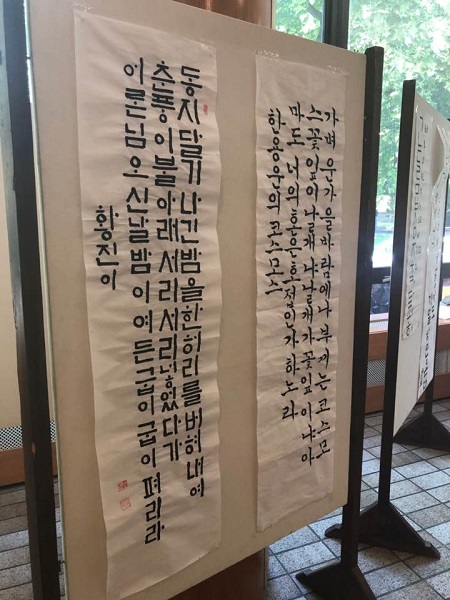 가벼운가을바람에나부끼는코스모
스꽃잎이날개냐날개가꽃잎이냐아
마도 너의혼은호접인가 하노라
한용운의코스모스
동지달기나긴밤을한허리를버혀내여
춘풍이불아래서리서리넣었다가
어론님오신날밤이여든굽이굽이펴리라
황진이